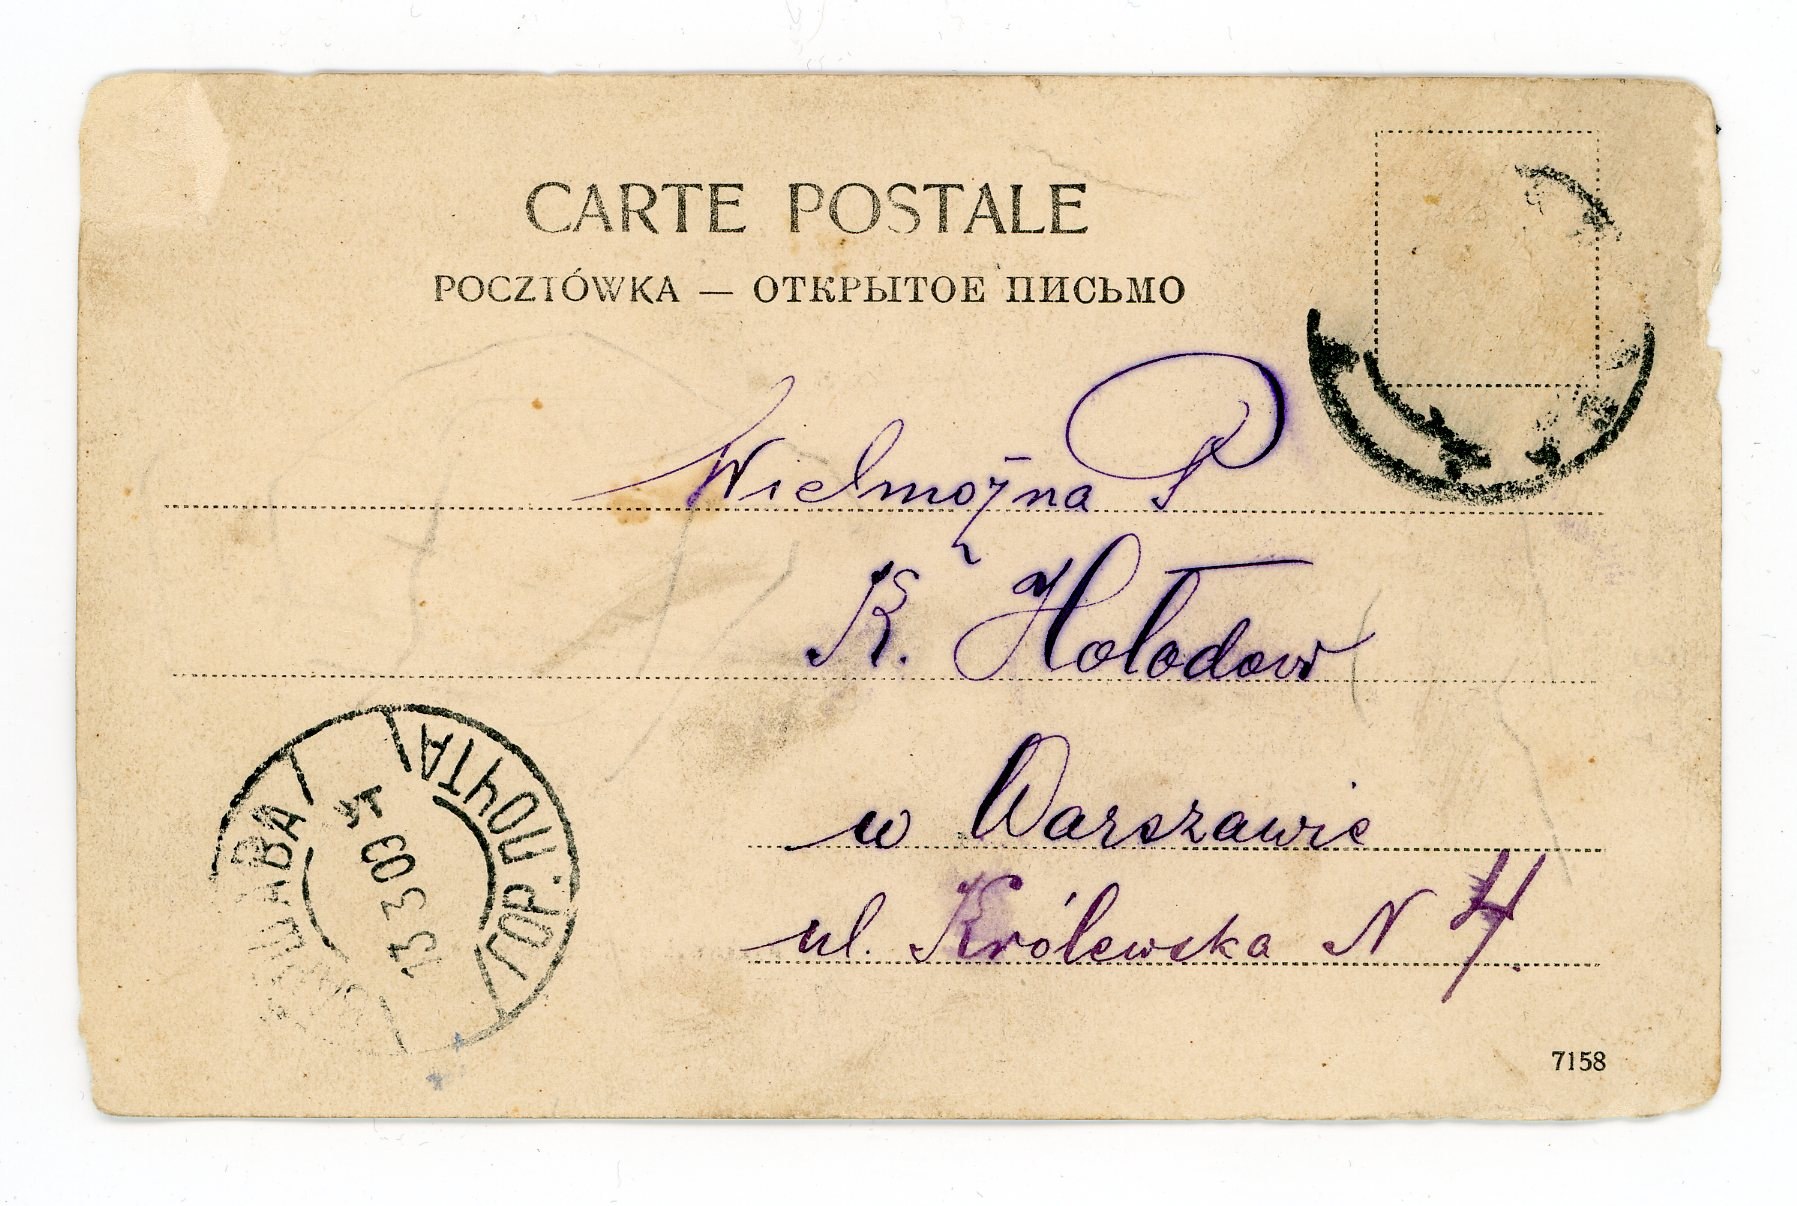 CARTE POSTALE
POCZTÓWKA — ОТКРЫТОЕ ПИСЬМО
Wielmożna P
K. Hołodow
w Warszawie
ul. Królewska N 4.
ВАРШАВА
ГОР. ПОЧТА
13 3 03
7158